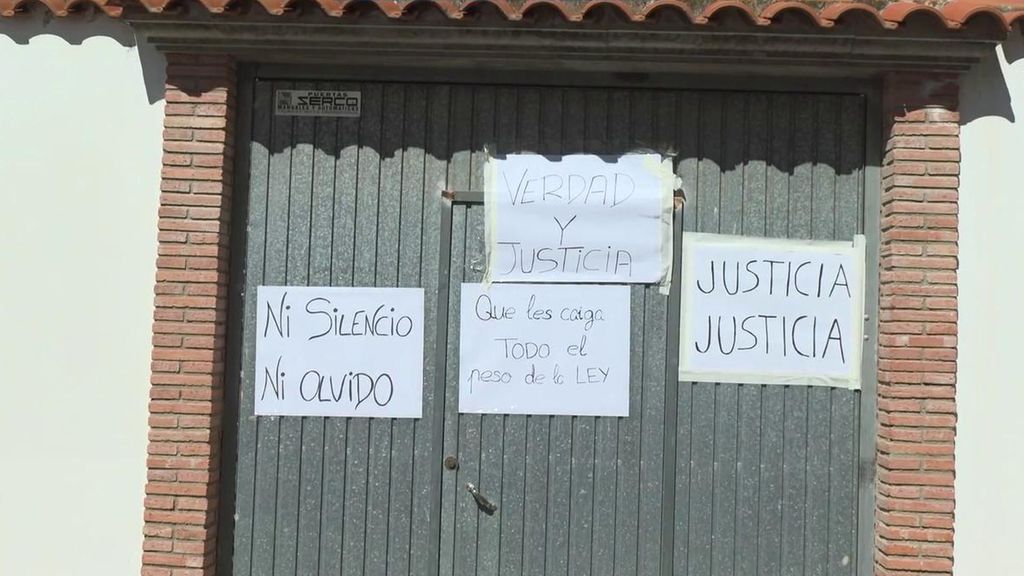 PUERTAS
SERCO
MANUALES Y AUTOMATICAS
VERDAD
Y
JUSTICIA
JUSTICIA
JUSTICIA
Ni SiLENCiO
Ni OLViDO
Que les caiga
TODO el
peso de la LEY